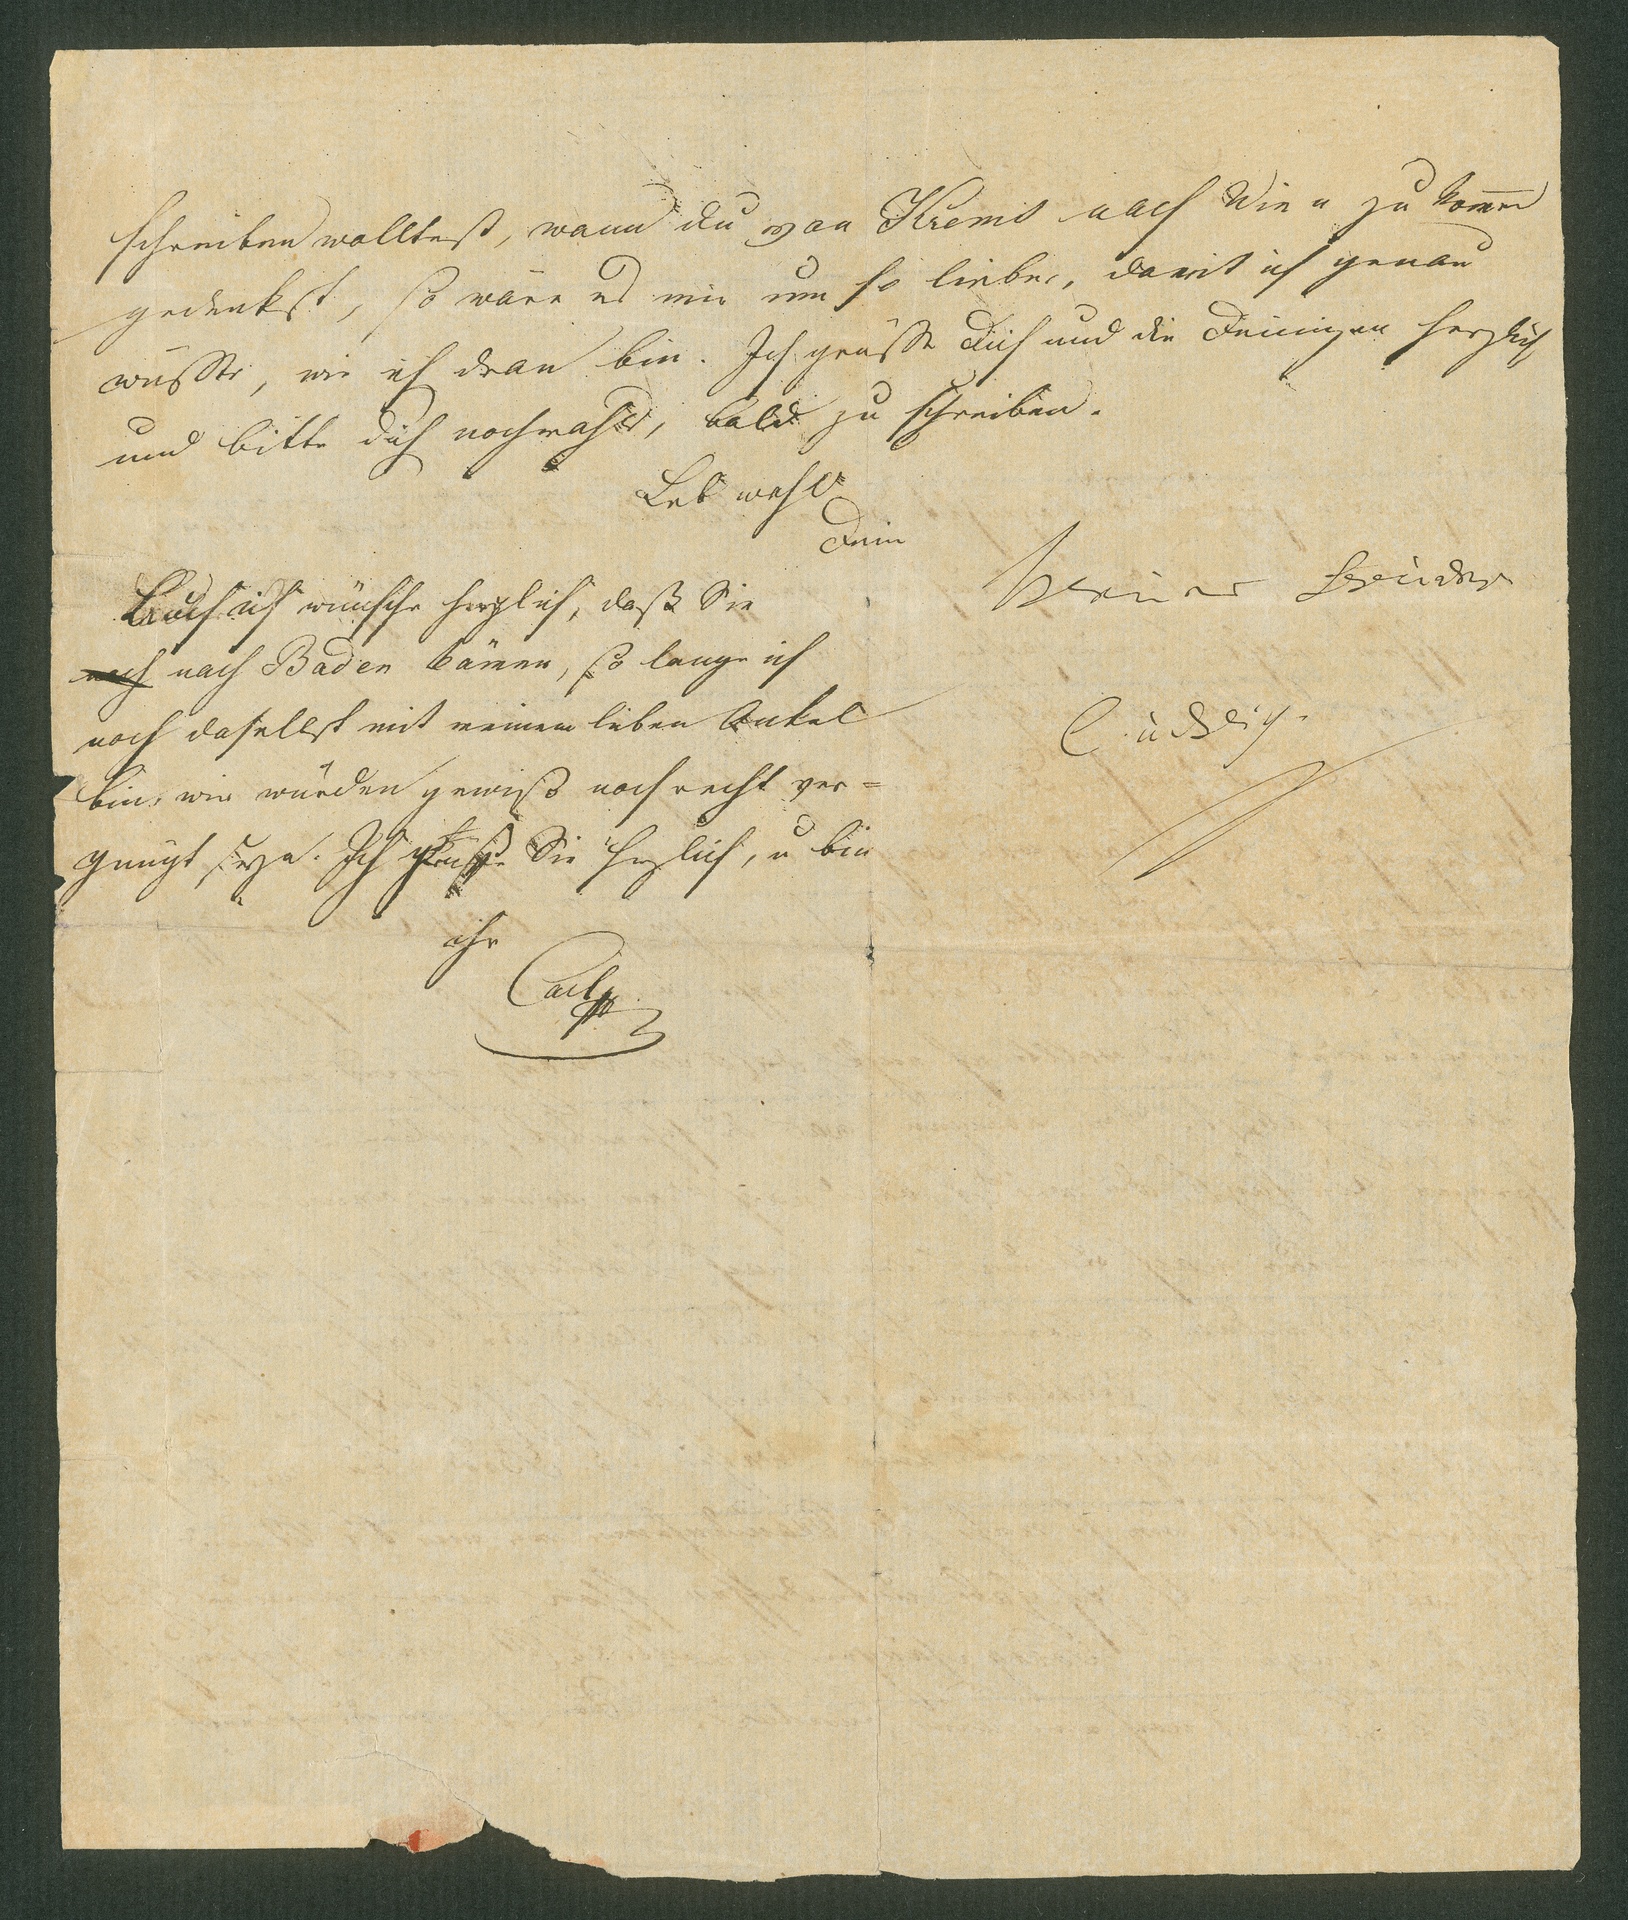 schreiben wolltest, wann du von Krems nach Wien zu kom̅en
gedenkst, so wäre es mir um so lieber, damit ich genau
wüsste, wie ich dran bin. Ich grüsse Dich und die Deinigen herzlich
und bitte dich nochmahls, bald zu schreiben.
Leb wohl
Dein
treuer Bruder
Ludwig.
Auch ich wünsche herzlich, daß Sie
noch nach Baden kämen, so lange ich
noch daselbst mit meinem lieben Onkel
bin, wir würden gewiß noch recht ver=
gnügt seyn. Ich Sie herzlich, u bin
ihr
Carl